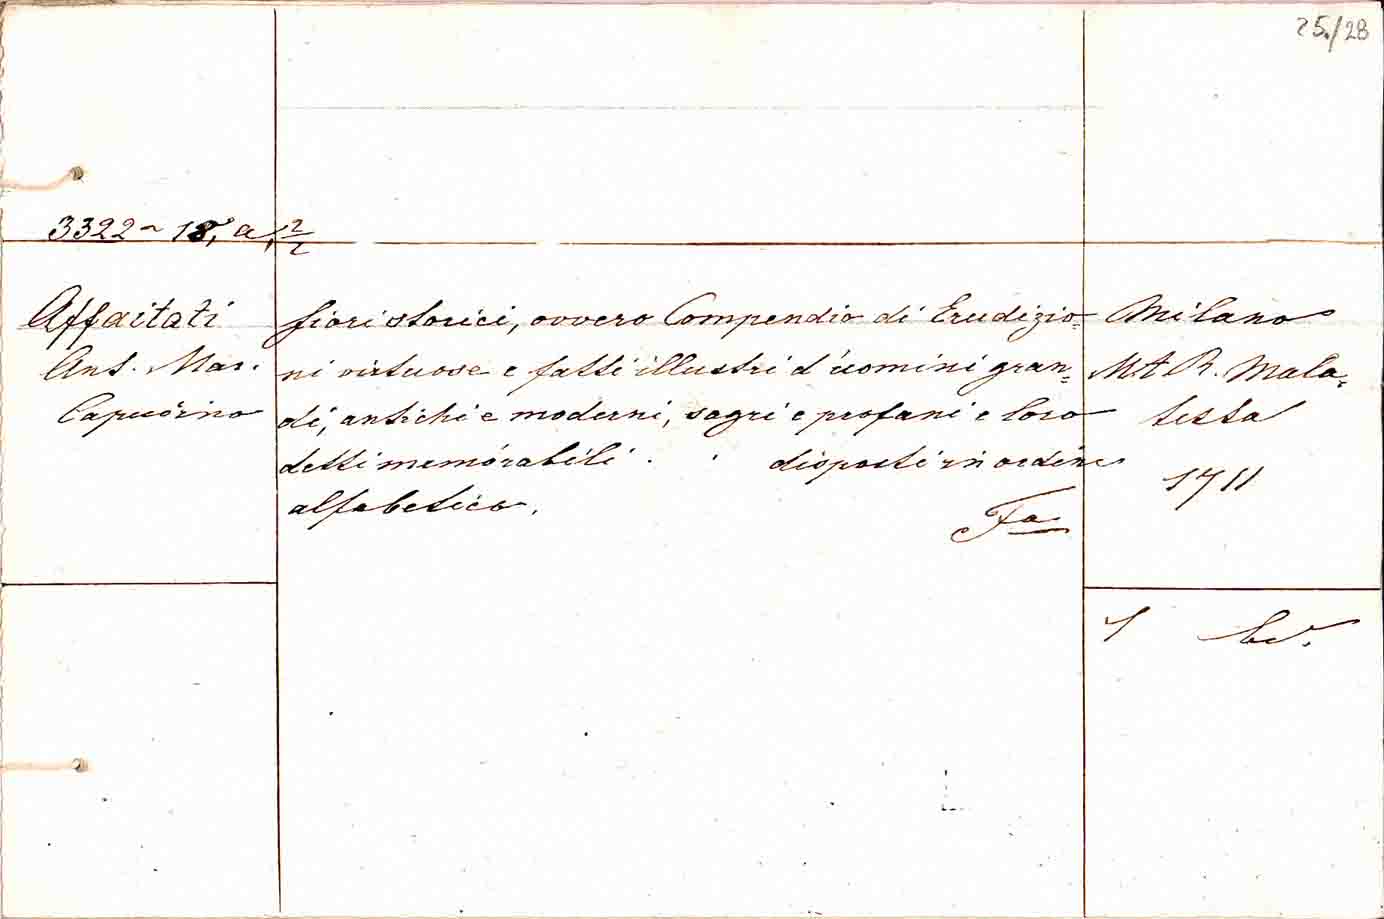 25./28
3322~18, a, 2/2
Affaitati
Ant. Mar.
Capucino
fiori storici, ovvero Compendio di Erudizio=
ni virtuose e fatti illustri d'uomini gran=
di, antichi e moderni, sagri e profani e loro
detti memorabili . . disposti in ordine
alfabetico.
Fa
Milano
M A R. Mala=
testa
1711
1